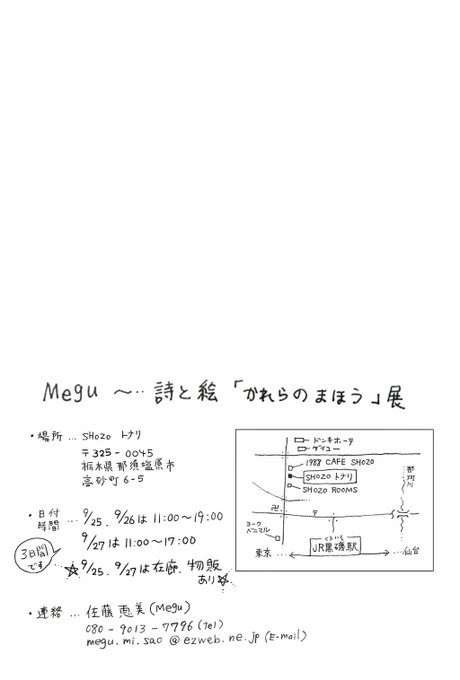 Megu 〜‥ 詩と絵 「かれらの まほう」展
・場所 … SHOZO トナリ
〒325-0045
栃木県那須塩原市
高砂町6-5
・日付 時間 … 9/25. 9/26は 11:00〜19:00
9/27は 11:00〜17:00
3日間です
☆9/25. 9/27は在廊. 物販
あり☆
・連絡 … 佐藤 恵美 (Megu)
080-9013-7796 (Tel)
megu.mi.sao @ezweb.ne.jp (E-mail)
ドンキホーテ
ダイユー
1988 CAFE SHOZO
SHOZO トナリ
SHOZO ROOMS
那珂川
卍
〒
ヨークベニマル
くろいそ
JR黒磯駅
東京
仙台